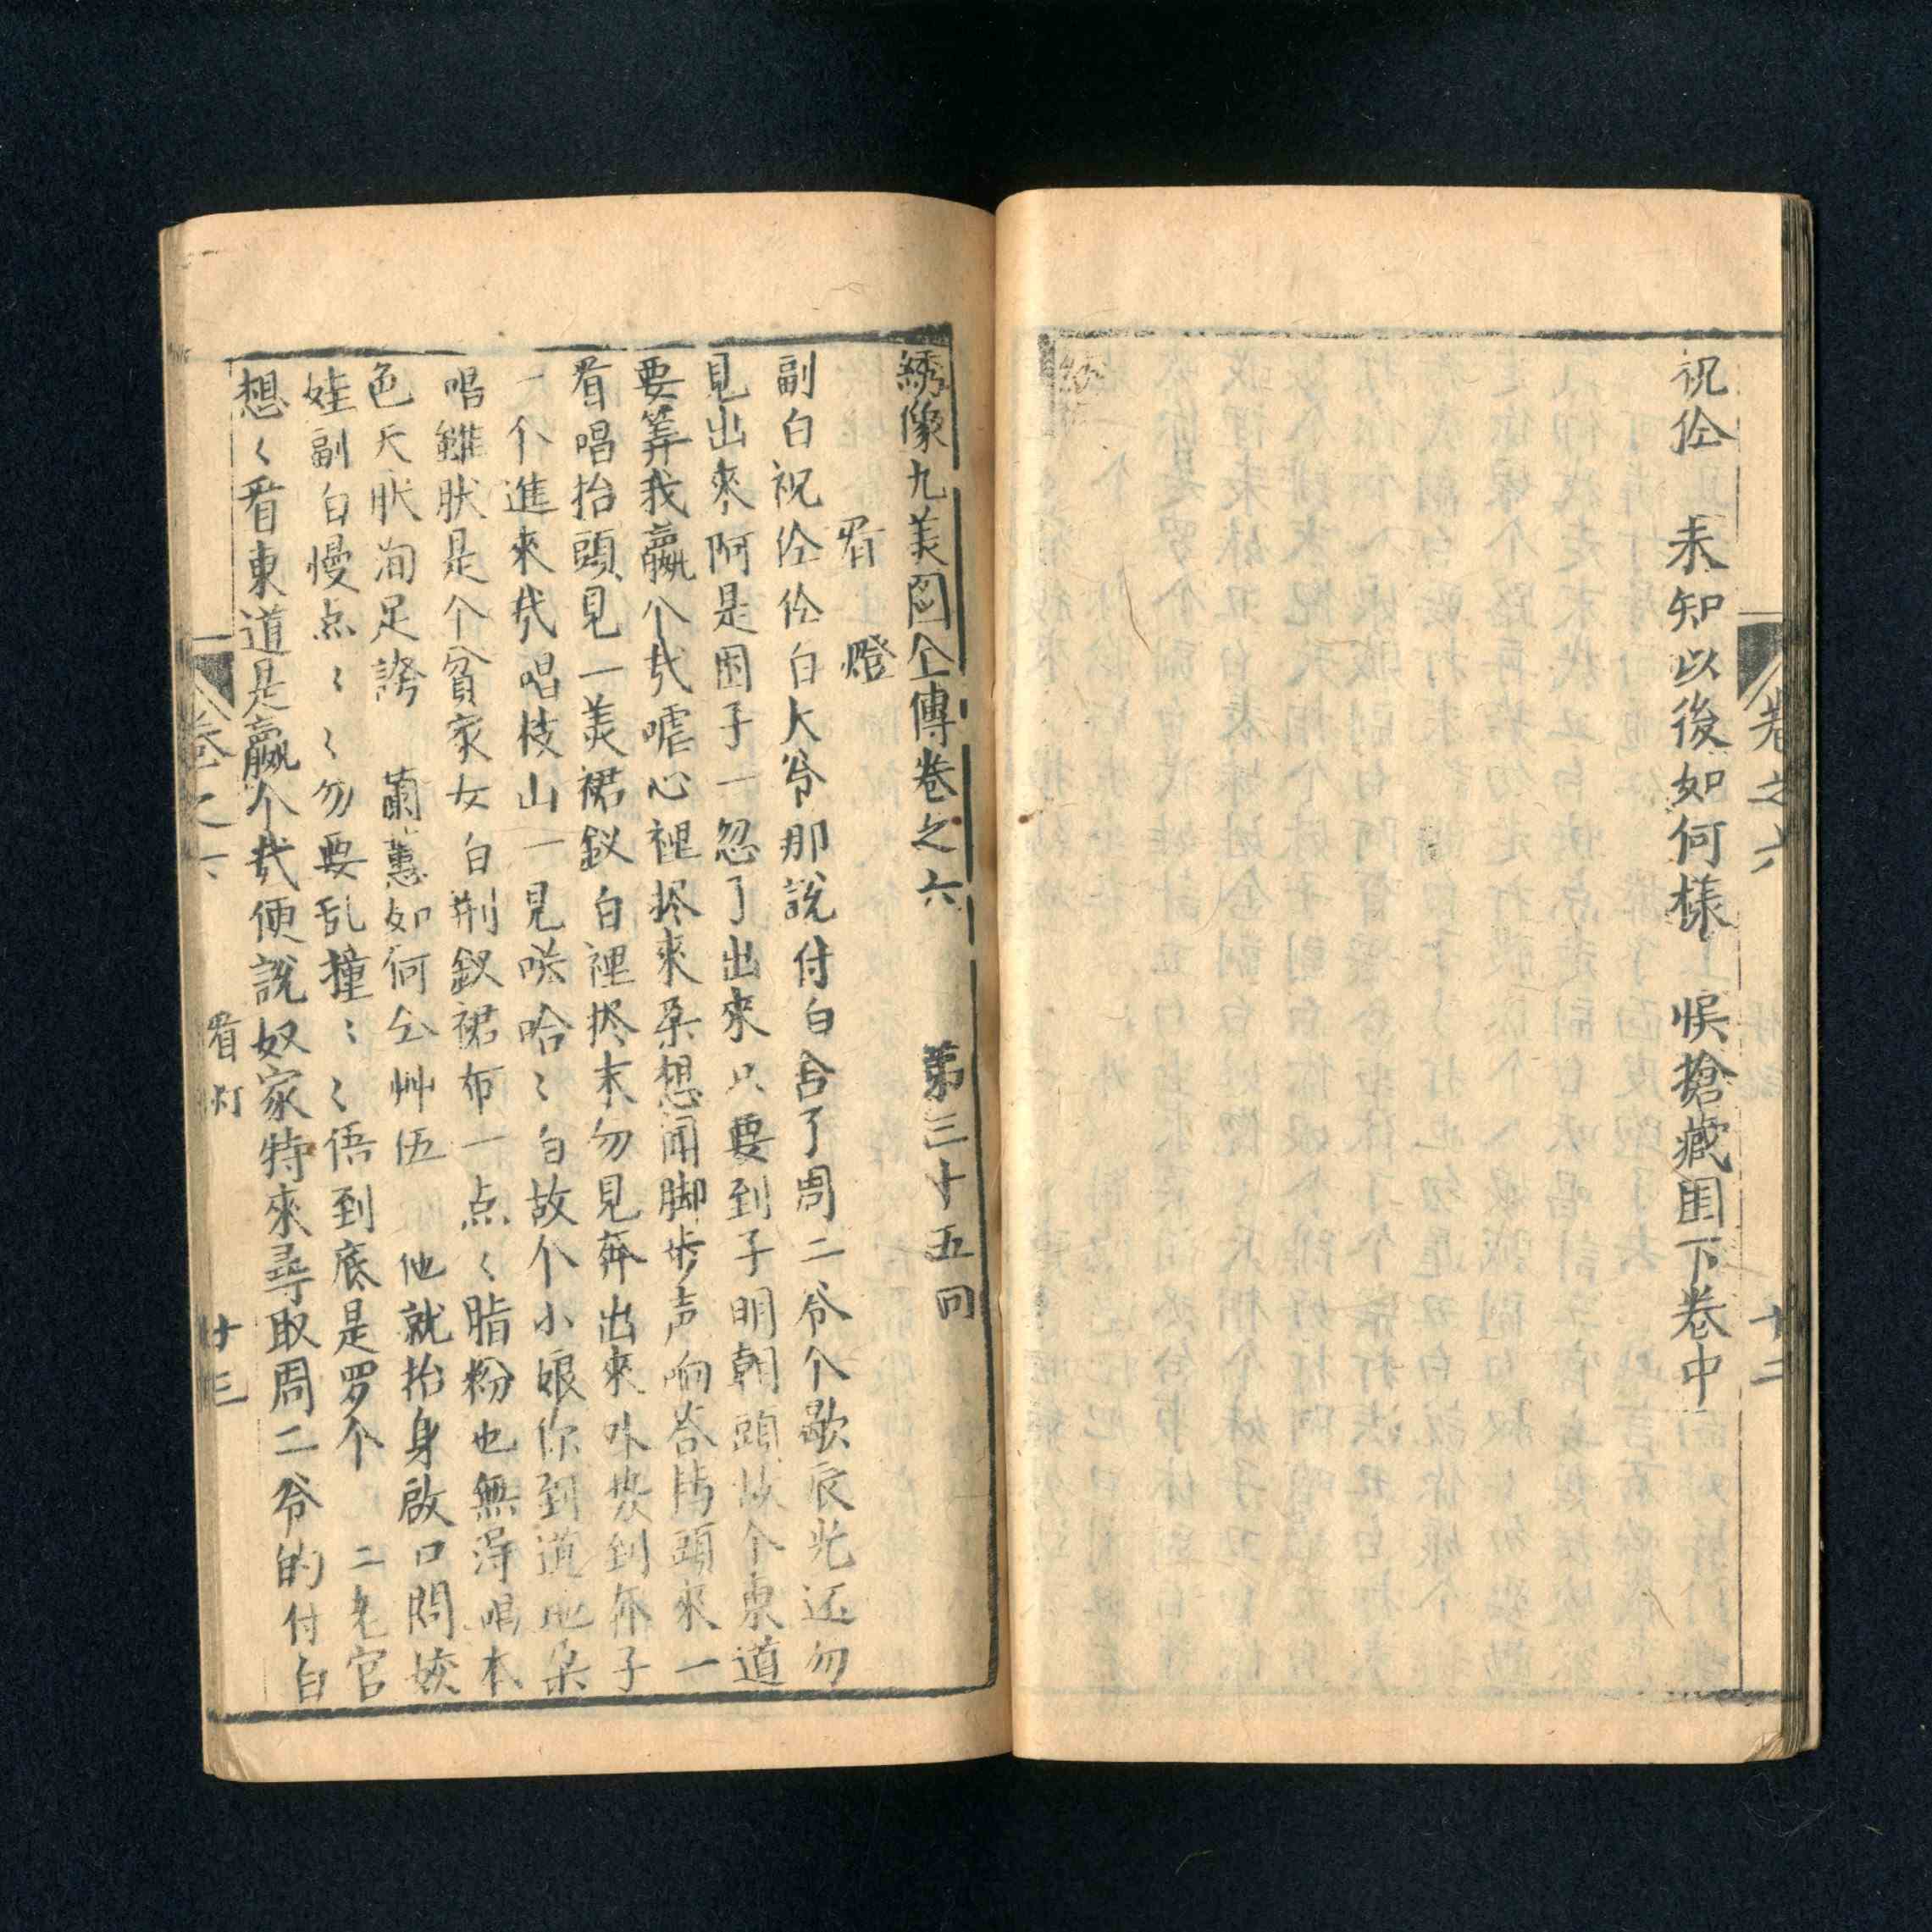 祝佺　未知以後如何樣　悞搶藏閨下卷中
卷之六　十二
綉像九美図仝傳卷之六　第三十五回
看燈
副白祝佺佺白大爷那說付白含了周二爷个歇辰光还勿
見出來阿是困子一忽了出來只要到子明朝頭故个東道
要筭我贏个哉嘘心裡拯來朶想聞脚步声响荅轉頭來一
看唱抬頭見一美裙釵白裡拯末勿見奔出來外势到奔子
一个進來哉唱枝山一見哈哈〻白故个小娘你到道地朶
唱雖肰是个貧家女白荆釵裙布一点〻脂粉也無淂唱本
色天肰洵足誇　蘭蕙如何仝艸伍　他就抬身啟口問姣
娃副白慢点〻〻勿要乱撞〻〻俉到底是罗个　二老官
想〻看東道是贏个哉便說奴家特來尋取周二爷的付白
卷之六　看灯　十三